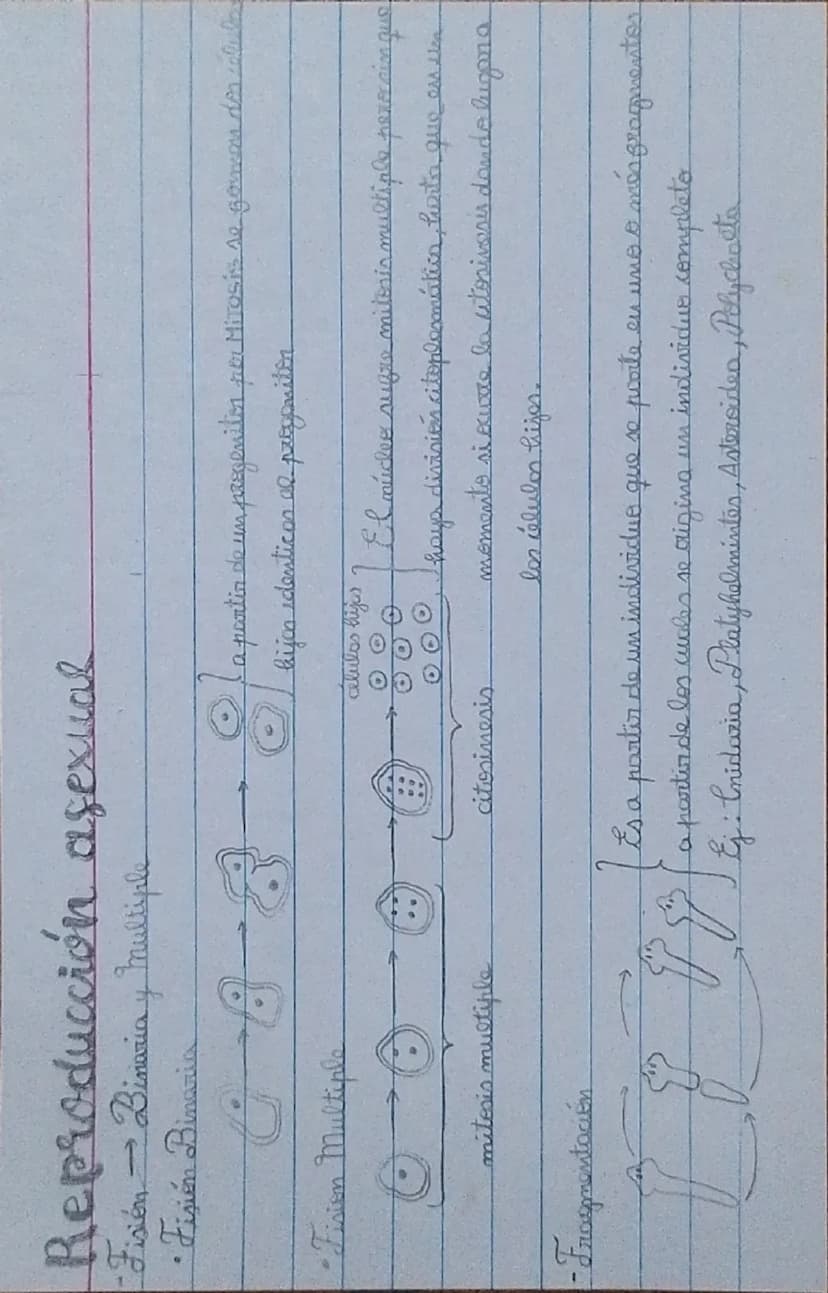 Reproducción asexual
- Fisión → Binaria y Multiple
• Fisión Binaria
a partir de un progenitor por Mitosis se forman dos células
hijas identicas al progenitor
• Fision Multiple
células hijas
El núcleo sufre mitosis multiple pero sin que
haya división citoplasmática, hasta que en un
mitosis multiple citosinesis momento si ocurre la citosinesis dando lugar a
las células hijas.
- Fragmentación
Es a partir de un individuo que se parte en uno o más fragmentos
a partir de los cuales se origina un individuo completo
Ej: Cnidaria, Platyhelmintes, Asteroidea, Polychaeta